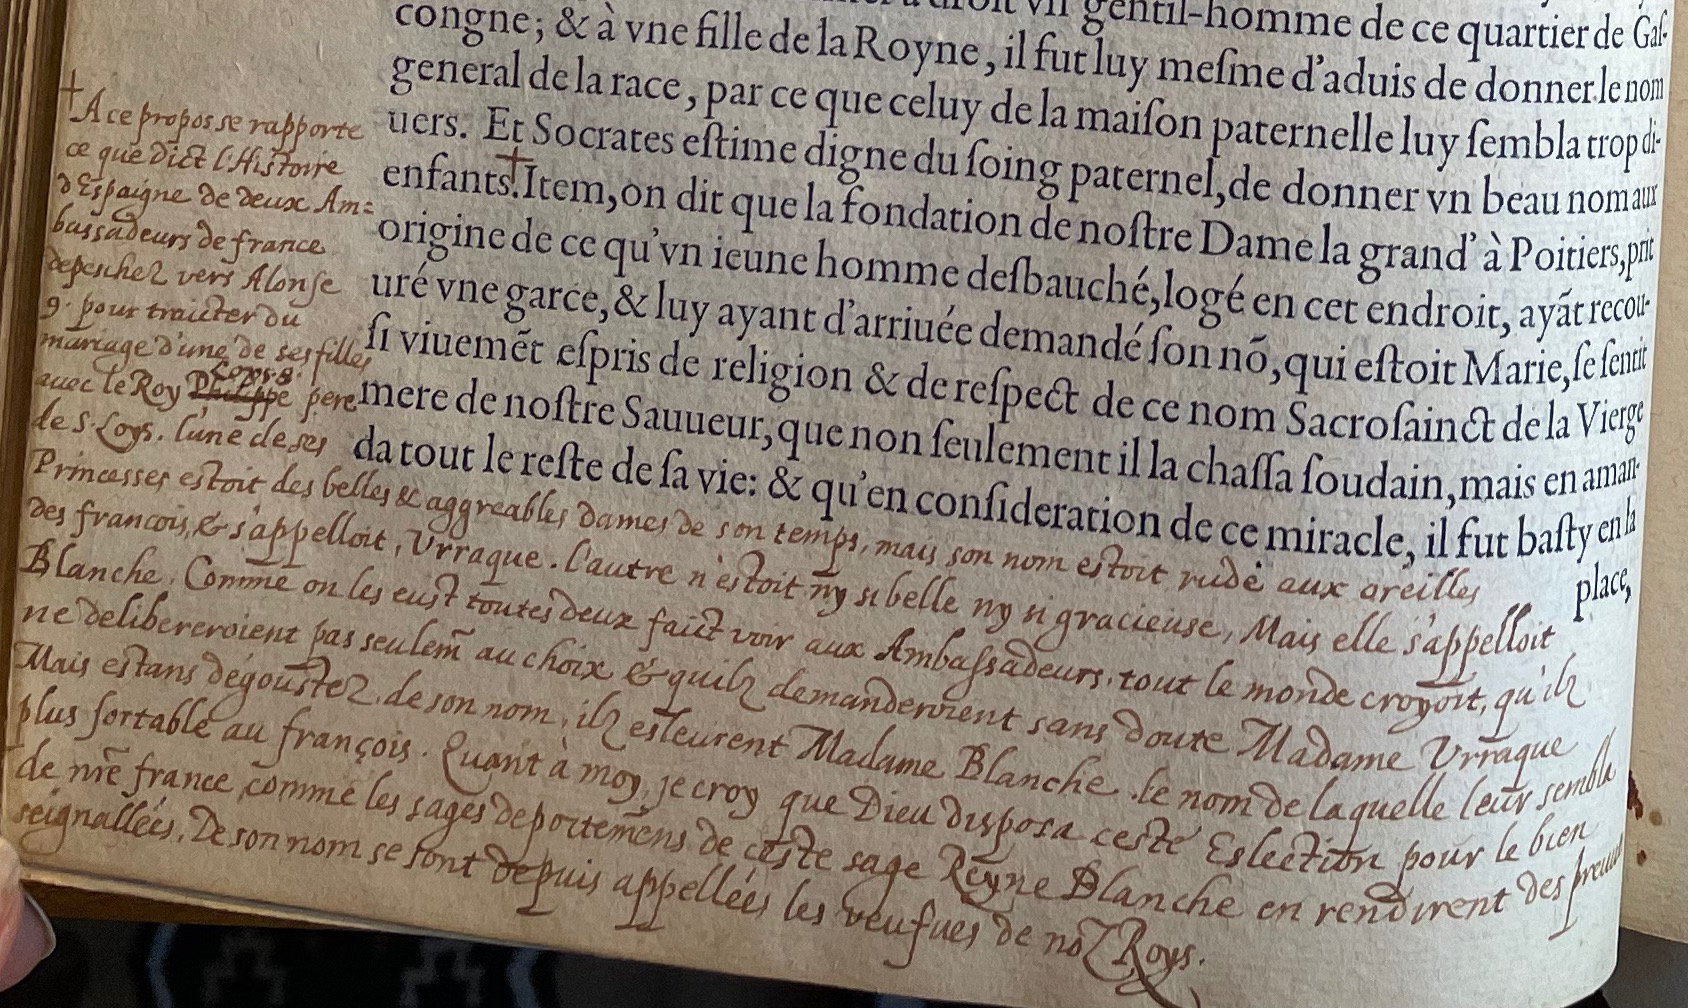 vn gentil-homme de ce quartier de Gaſ-
congne; & à vne fille de la Royne, il fut luy meſme d'aduis de donner le nom
general de la race, par ce que celuy de la maiſon paternelle luy ſembla trop di-
uers. Et Socrates eſtime digne du ſoing paternel, de donner vn beau nom aux
enfants.† Item, on dit que la fondation de noſtre Dame la grand' à Poitiers, prit
origine de ce qu'vn ieune homme deſbauché, logé en cet endroit, ayãt recou-
uré vne garce, & luy ayant d'arriuée demandé ſon nõ, qui eſtoit Marie, ſe ſentit
ſi viuemẽt eſpris de religion & de reſpect de ce nom Sacroſainct de la Vierge
mere de noſtre Sauueur, que non ſeulement il la chaſſa ſoudain, mais en aman-
da tout le reſte de ſa vie: & qu'en conſideration de ce miracle, il fut baſty en la
place,
† A ce propos se rapporte
ce que dict l'Histoire
d'Espaigne de deux Am=
bassadeurs de france
depeschez vers Alonse
9. pour traicter du
mariage d'une de ses filles
Loys 8.
avec le Roy Philippe pere
de S. Loys. l'une de ses
Princesses estoit des belles & aggreables dames de son temps, mais son nom estoit rude aux oreilles
des francois, & s'appelloit, Vrraque. l'autre n'estoit ny si belle ny si gracieuse, Mais elle s'appelloit
Blanche. Comme on les eust toutes deux faict voir aux Ambassadeurs, tout le monde croyoit, qu'ilz
ne delibereroient pas seulem̃ au choix & quilz demanderoient sans doute Madame Vrraque
Mais estans dégoustez de son nom, ilz esleurent Madame Blanche. le nom de laquelle leur sembla
plus sortable au françois. Quant à moy, je croy que Dieu disposa ceste Eslection pour le bien
de nr̃e france, comme les sages deportemens de ceste sage Reyne Blanche en rendirent des
seignallées. De son nom se sont depuis appellées les veufues de noz Roys.